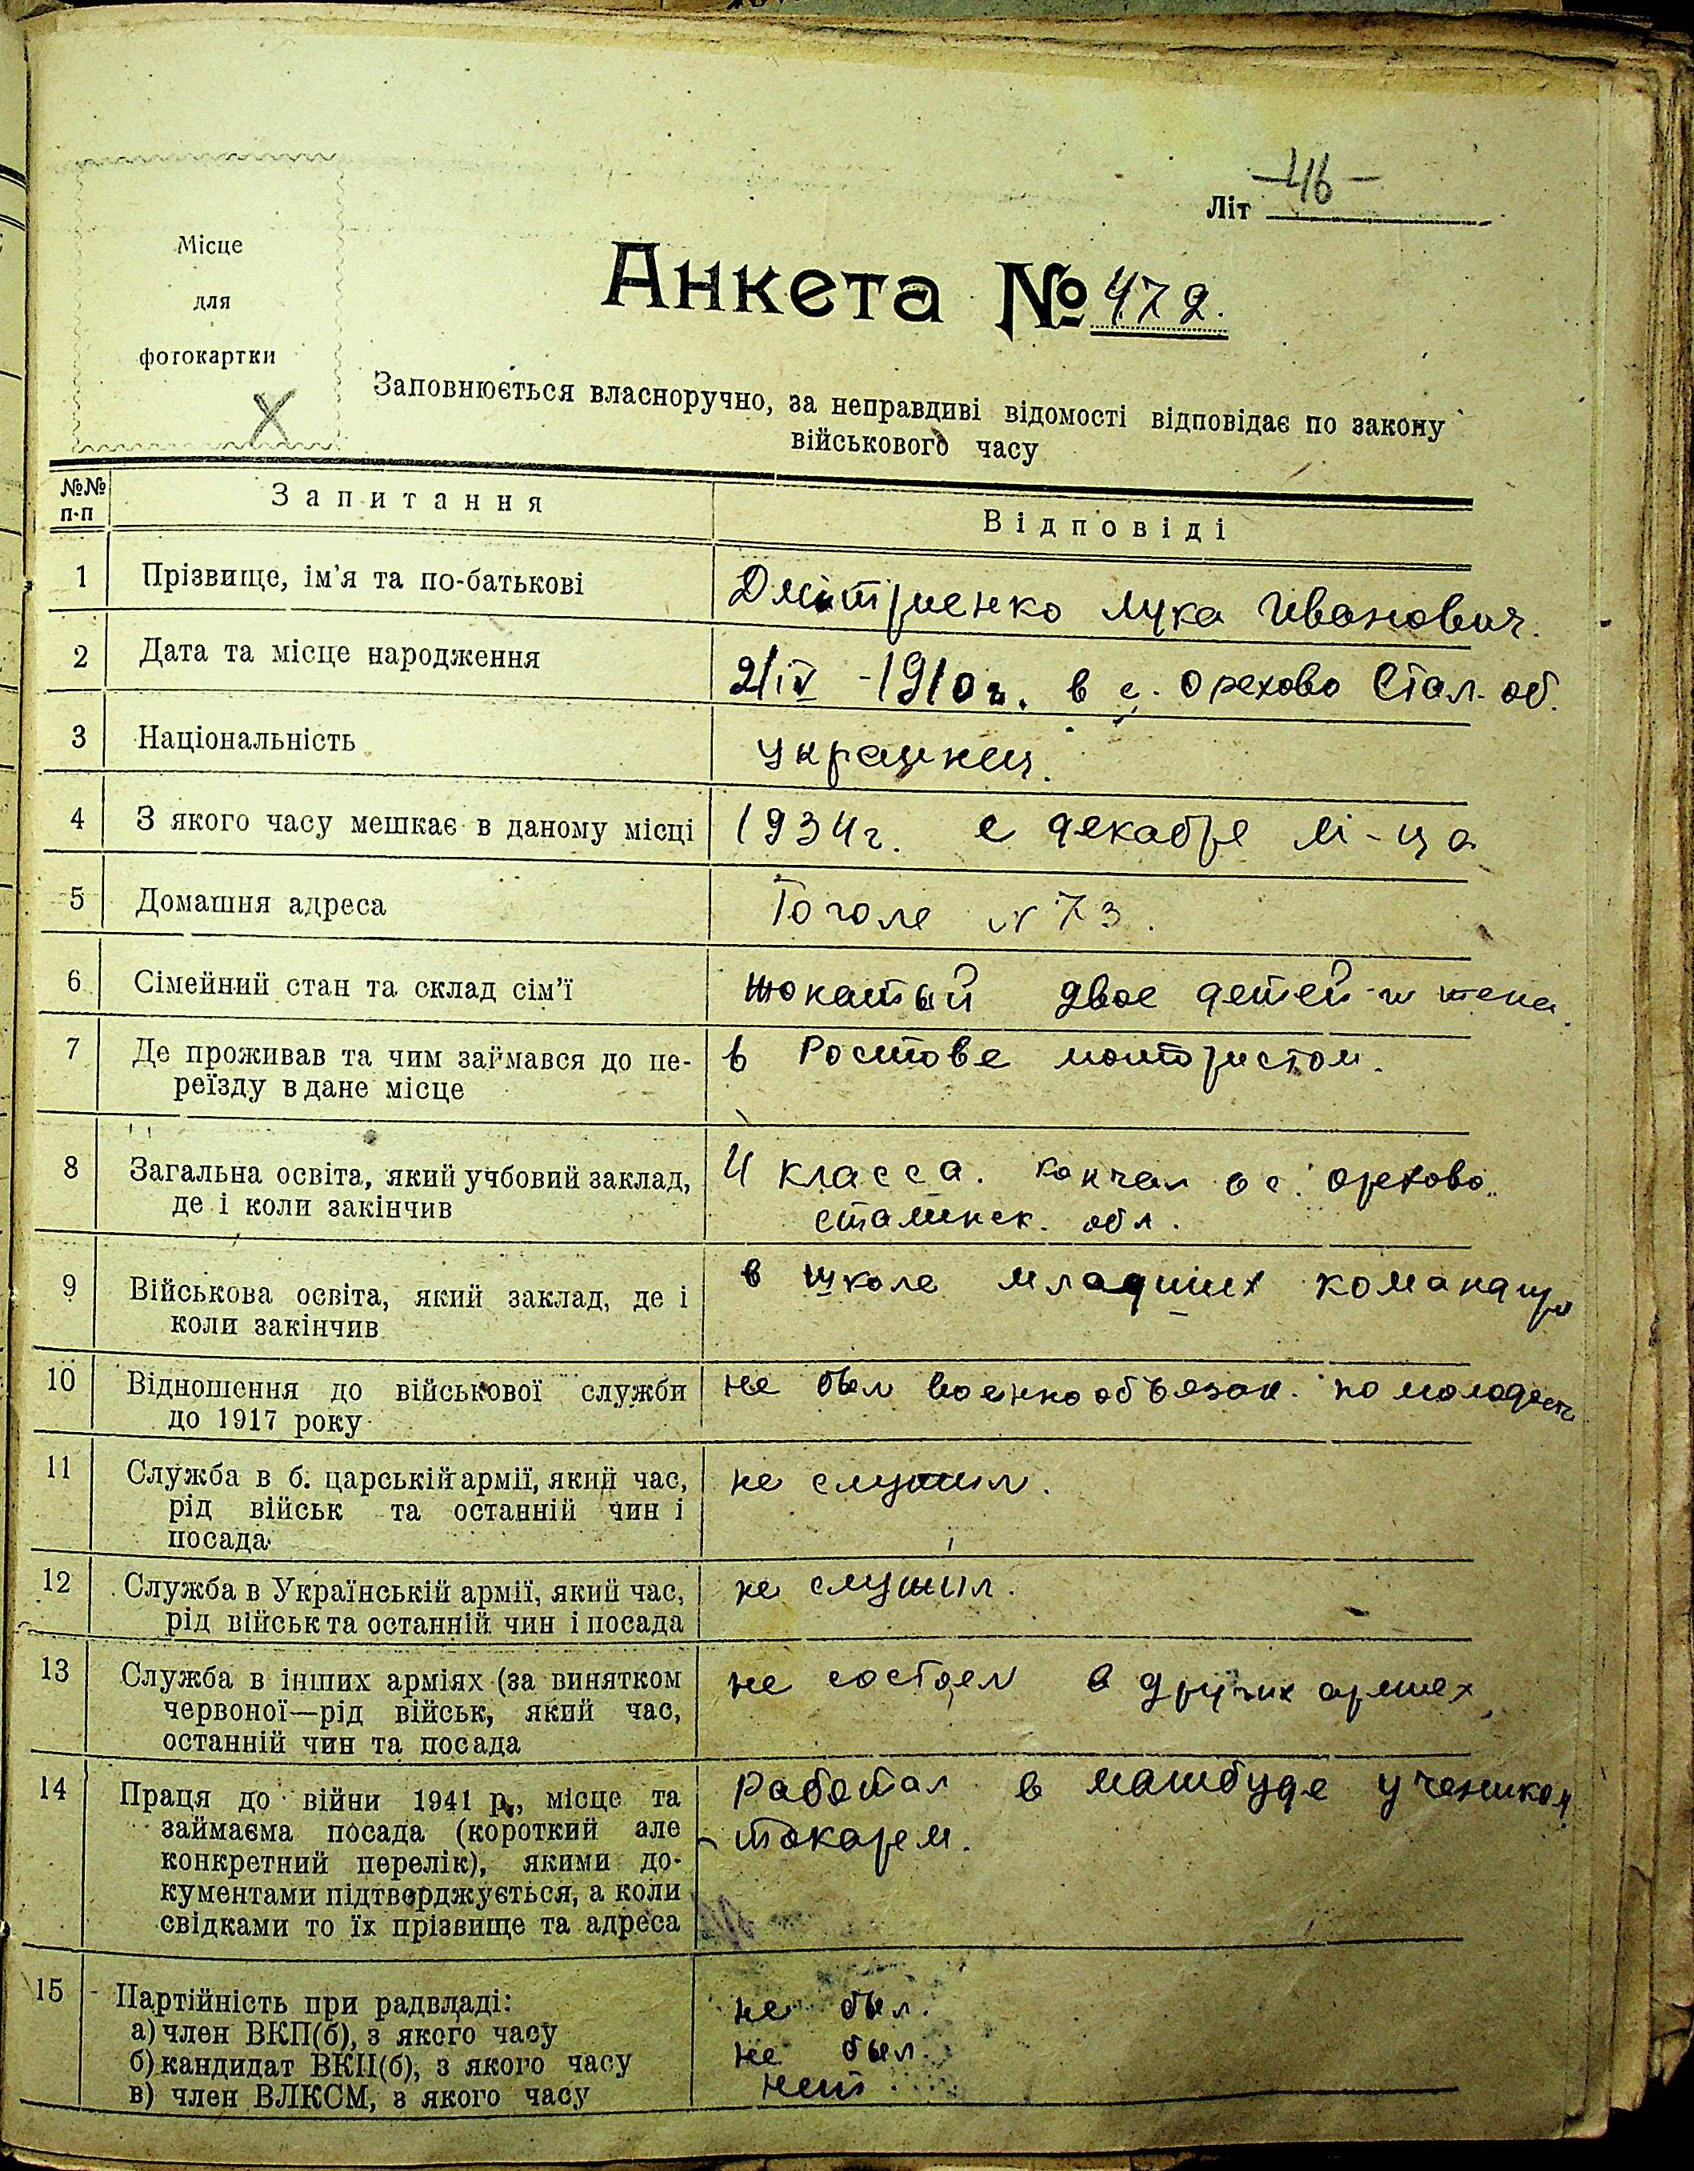 Літ -46-
Місце
для
фотокартки
Анкета № 472.
Заповнюється власноручно, за неправдиві відомості відповідає по закону
військового часу
№№
п-п
Запитання
Відповіді
1 Прізвище, ім'я та по-батькові
Дмітриенко Лука Иванович.
2 Дата та місце народження
2/IV - 1910 г. в с. Орехово Стал. об.
3 Національність
украинец.
4 З якого часу мешкає в даному місці
1934 г. с декабре м-ца
5 Домашня адреса
Гоголе N 73.
6 Сімейний стан та склад сім'ї
двое детей и жена.
7 Де проживав та чим займався до пе-
реїзду в дане місце
в Ростове монтористом.
8 Загальна освіта, який учбовий заклад,
де і коли закінчив
4 класса. кончал в с. Орехово.
сталинск. обл.
9 Військова освіта, який заклад, де і
коли закінчив
в школе младших
10 Відношення до військової служби
до 1917 року
не был военнообязан. по молодости
11 Служба в б. царській армії, який час,
рід військ та останній чин і
посада
не служил.
12 Служба в Українській армії, який час,
рід військ та останній чин і посада
не служил.
13 Служба в інших арміях (за винятком
червоної—рід військ, який час,
останній чин та посада
не состоял в других армиех
14 Праця до війни 1941 р., місце та
займаєма посада (короткий але
конкретний перелік), якими до-
кументами підтверджується, а коли
свідками то їх прізвище та адреса
Работал в машбуде учеником
токарем.
15 Партійність при радвладі:
а) член ВКП(б), з якого часу
б) кандидат ВКП(б), з якого часу
в) член ВЛКСМ, з якого часу
не был.
не был.
нет.